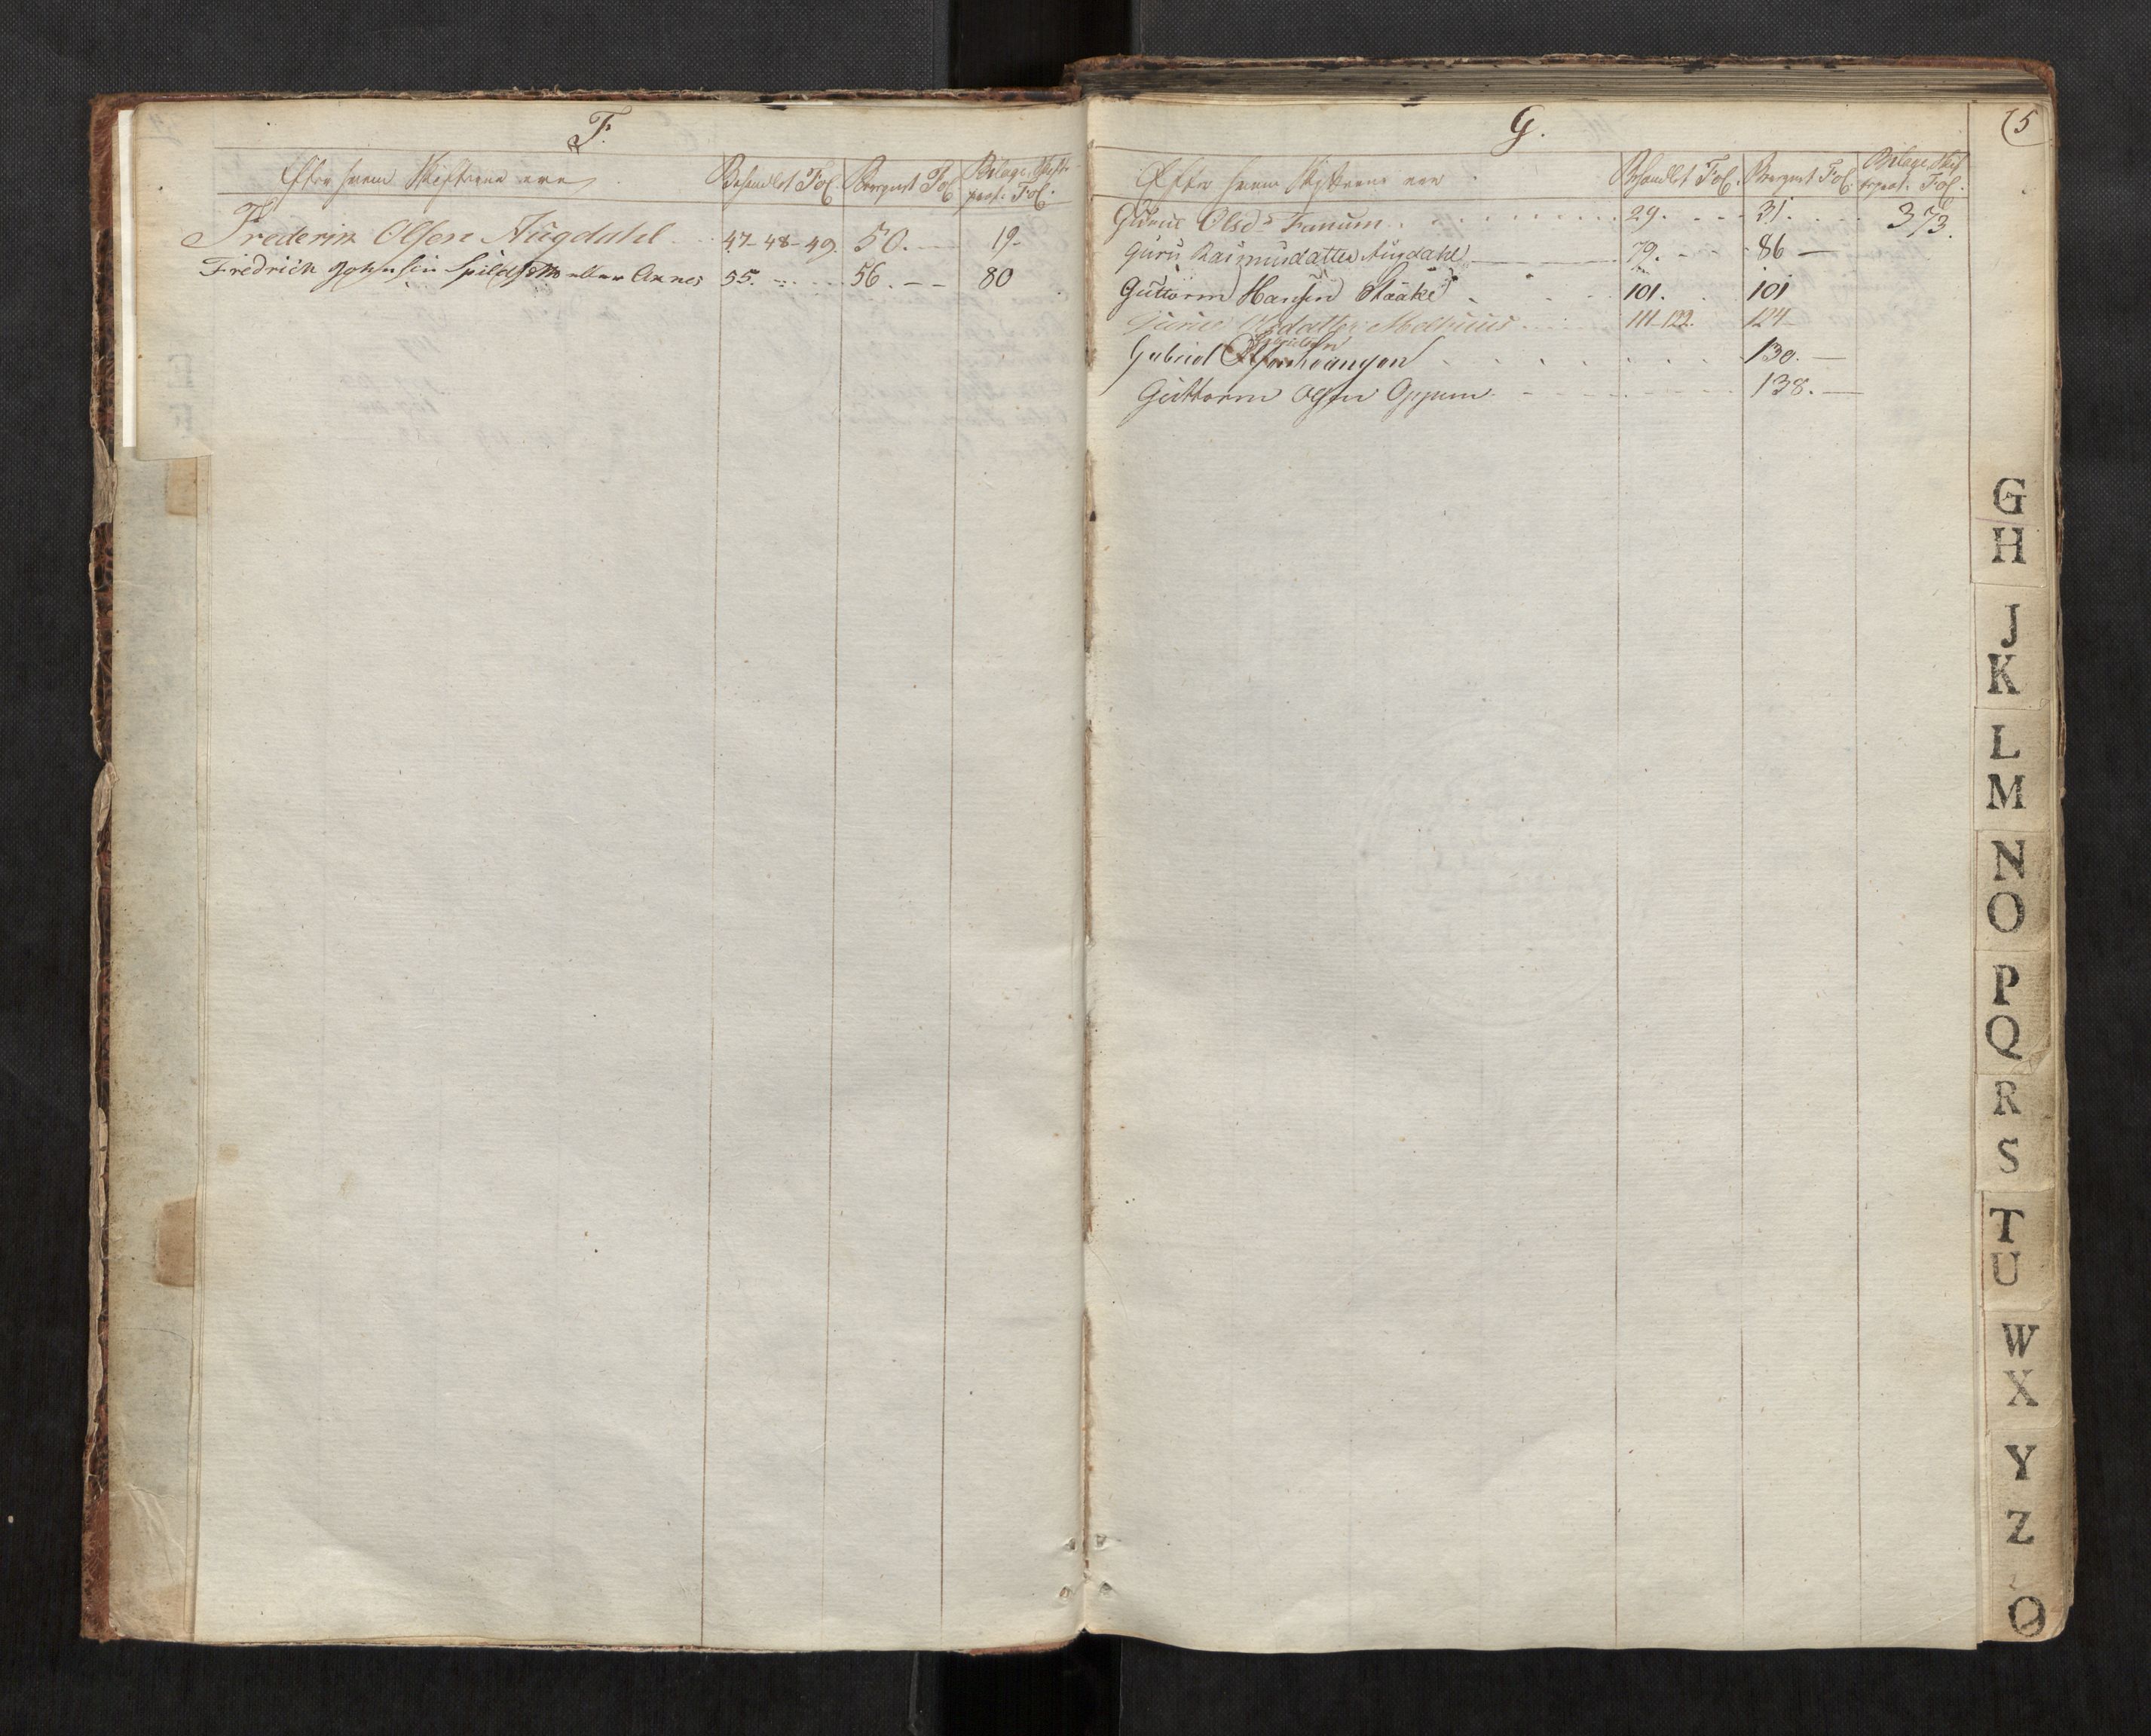 F.
Efter hvem Skifterne ere
Behandlet Fol. Beregnet Fol. Bilage Skifte prot: Fol.
Frederik Olsen Augdahl 47-48-49. 50. 19.
Fredrich Johnsen eller Annes 55. 56. 80
G. 5
Efter hvem Skifterne ere
Behandlet Fol. Beregnet Fol. Bilage Skif teprot. Fol.
Gurue Olsdr Fanum 29. 31. 373.
Guru Rasmusdatter Augdahl 79. 86
Guttorm Hansen Staake 101. 101
Gurue Olsdatter 111-122. 124
Gabriel 130.
Guttorm Olsen Oppem 138.
G
H
J
K
L
M
N
O
P
Q
R
S
T
U
W
X
Y
Z
Ø